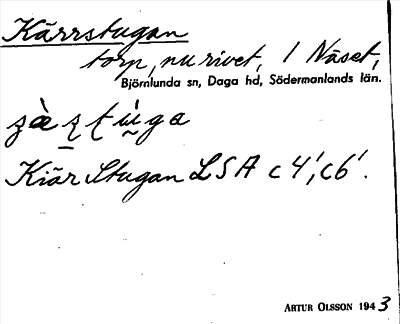 Kärrstugan
torp, nu rivet, / Näset,
Björnlunda sn, Daga hd, Södermanlands län.
Kiär Stugan LSA c4', c6'.
ARTUR OLSSON 1943